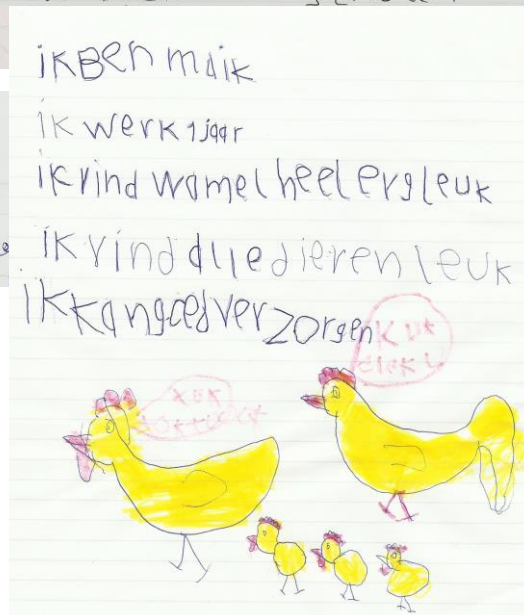 ikBen maik
ik werk 1 jaar
ik vind wamel heel erg leuk
ik vind alle dieren leuk
ik kan goed verzorgen